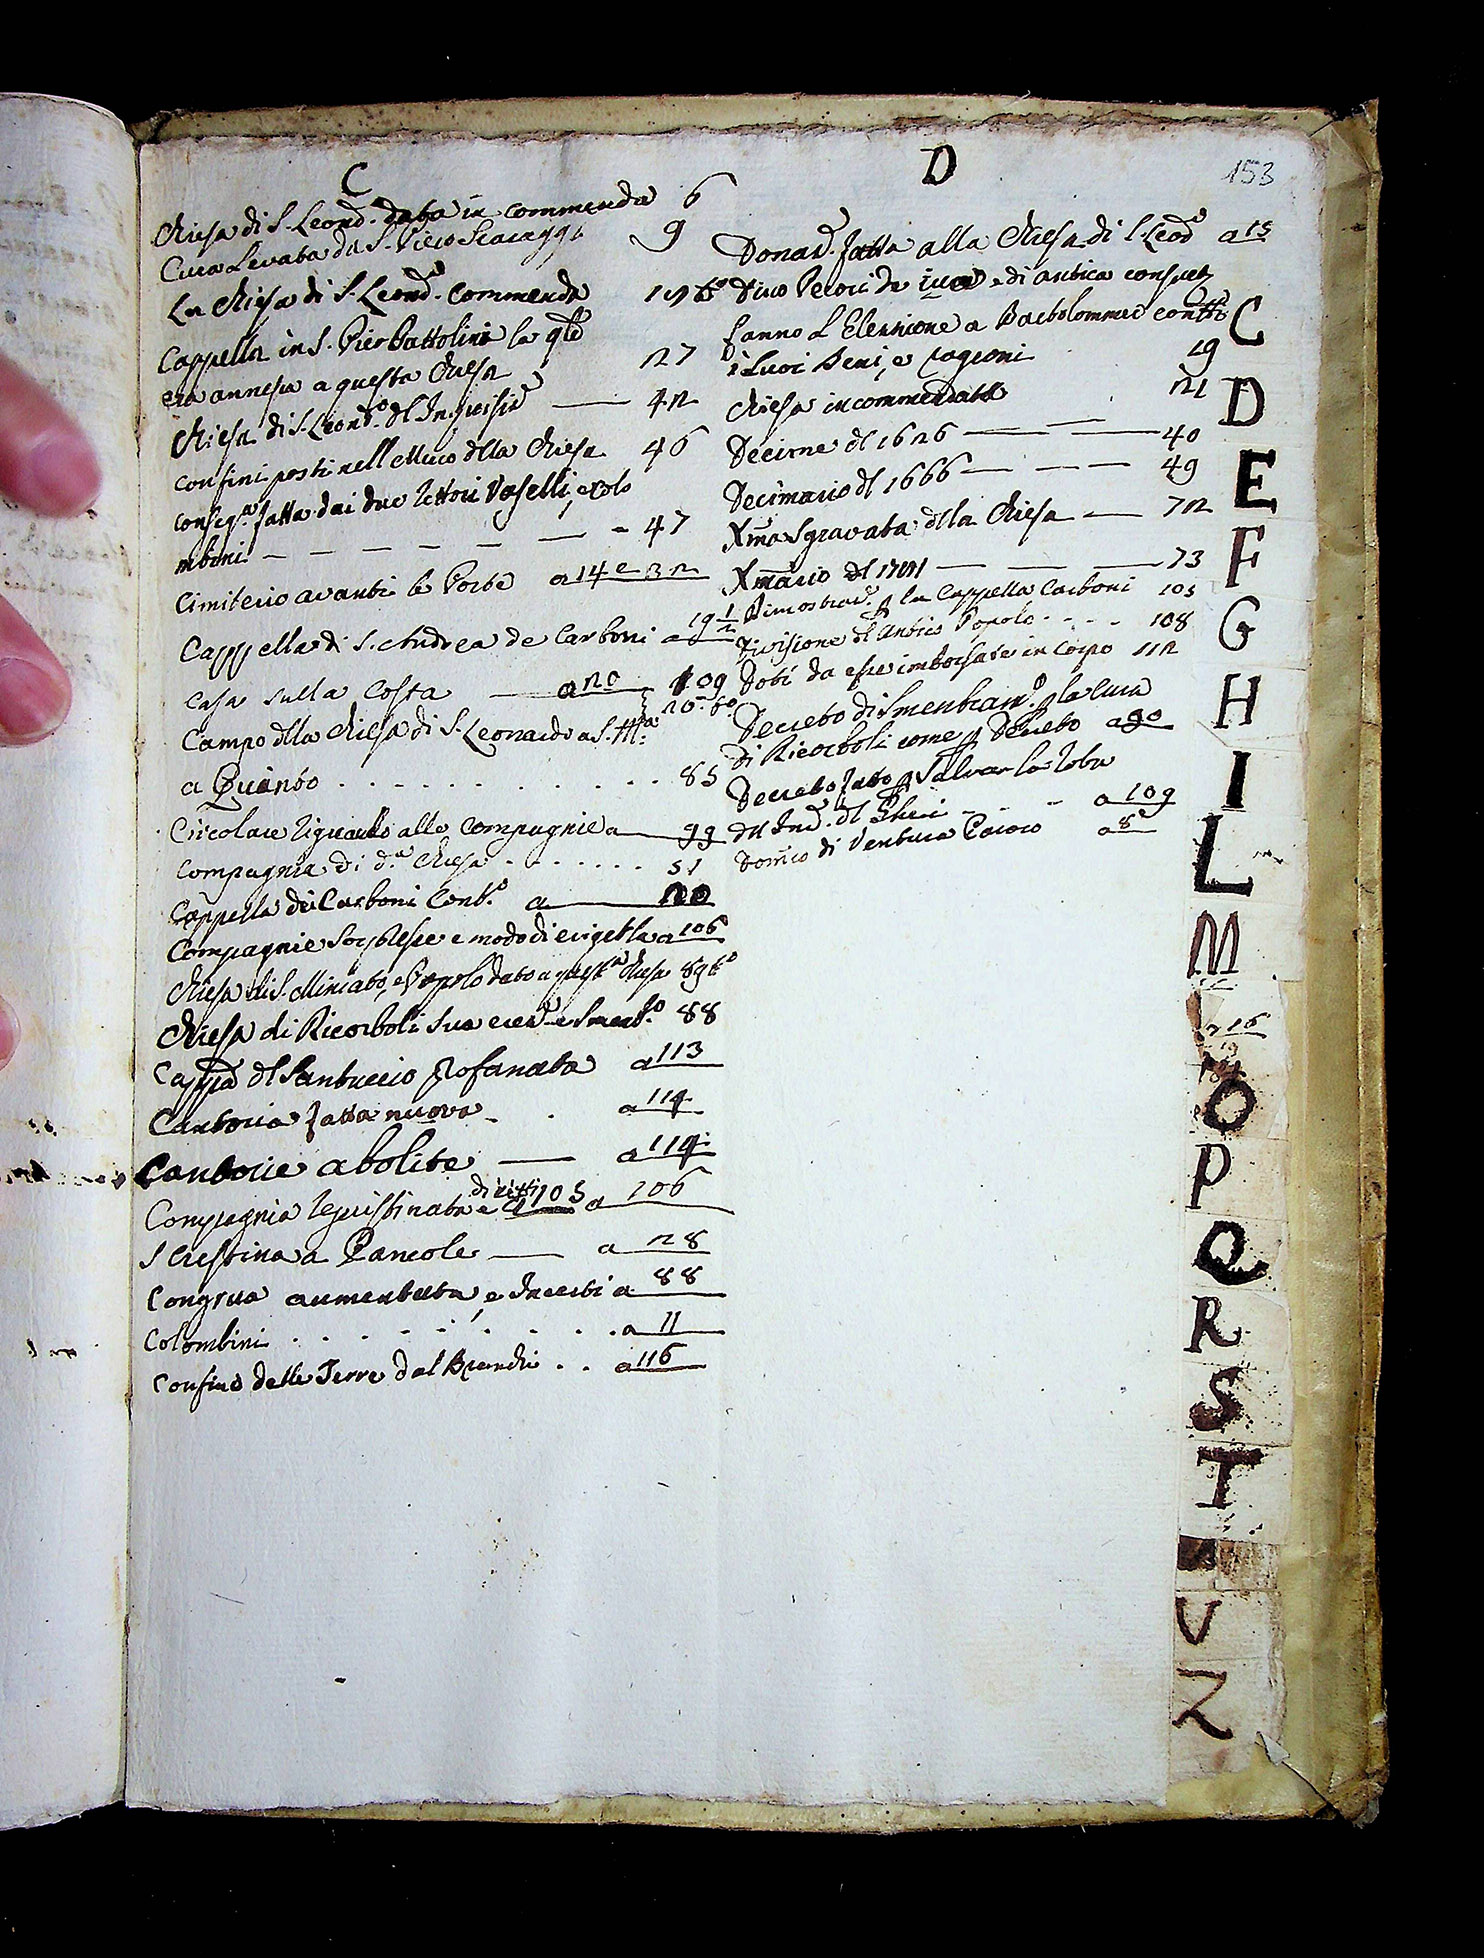 153
C
Chiesa di S. Leond.º data in commenda 6
Cura Levata da S. Piero Scaraggi 9
La Chiesa di S. Leond.º commenda 12 tº
Cappella in S. Pier Gattolini la qle
era annessa a questa Chiesa 27
Chiesa di S. Leond.º dl Inquisiz.e 42
confini posti nell Muro dlla Chiesa 46
conseg.a fatta dai due Rettori Vaselli, e Colo
mbini 47
Cimiterio avanti le Porte a 14 e 32
Cappella di S. Andrea de Carboni a 19 1/2
Casa sulla Costa a 20 109
Campo dlla Chiesa di S. Leonardo a S. M.a 20. 60.
a Quinto 85
Circolare riguardo alle Compagnie a 99
Compagnia di d.a Chiesa 51
Cappella dei Carboni Cont.º a 20
Compagnie soppresse e modo di erigerle a 106
Chiesa di S. Miniato, e Popolo dato a questa Chiesa 89 tº
Chiesa di Ricorboli sua erez.e e Smemb.º 88
Capp.a dl Santuccio profanata a 113
Cantoria fatta nuova a 114
Cantorie abolite a 114
diritti
Compagnia repristinata e a 105 a 106
S Cristina a Pancole a 28
Congrua aumentata, e Incerti a 88
Colombini a 11
Confino delle Terre dal Bianchi a 116
D
Donaz.e fatta alla Chiesa di S. Leod.º a 15
Dino Pecori de iure e di antica consuetz
fanno l Elezzione a Bartolommeo con tti
i suoi Beni, e ragioni 19
Chiesa incommendata 21
Decime dl 1626 40
Decimario dl 1666 49
Xma sgravata dlla Chiesa 72
Xmario dl 1721 73
Dimostraz.e p la Cappella Carboni 105
Divisione dl Antico Popolo 108
Doti da esse imborsare in Corpo 112
Decreto di Smembram.º p la Cura
di Ricorboli come p Decreto a 90
Decreto fatto p Salvar la roba
a 109
di Ventura a 8
C
D
E
F
G
H
I
L
M
O
P
Q
R
S
T
V
Z